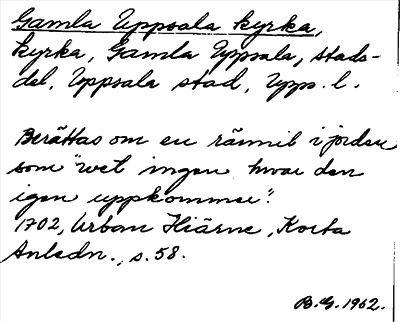 Gamla Uppsala kyrka,
kyrka, Gamla Uppsala, stads-
del, Uppsala stad, Upps. l.
Berättas om en rännil i jorden
som "wet ingen hwar den
igen uppkommer".
1702, Urban Hiärne, Korta
Anledn., s. 58.
B.G. 1962.